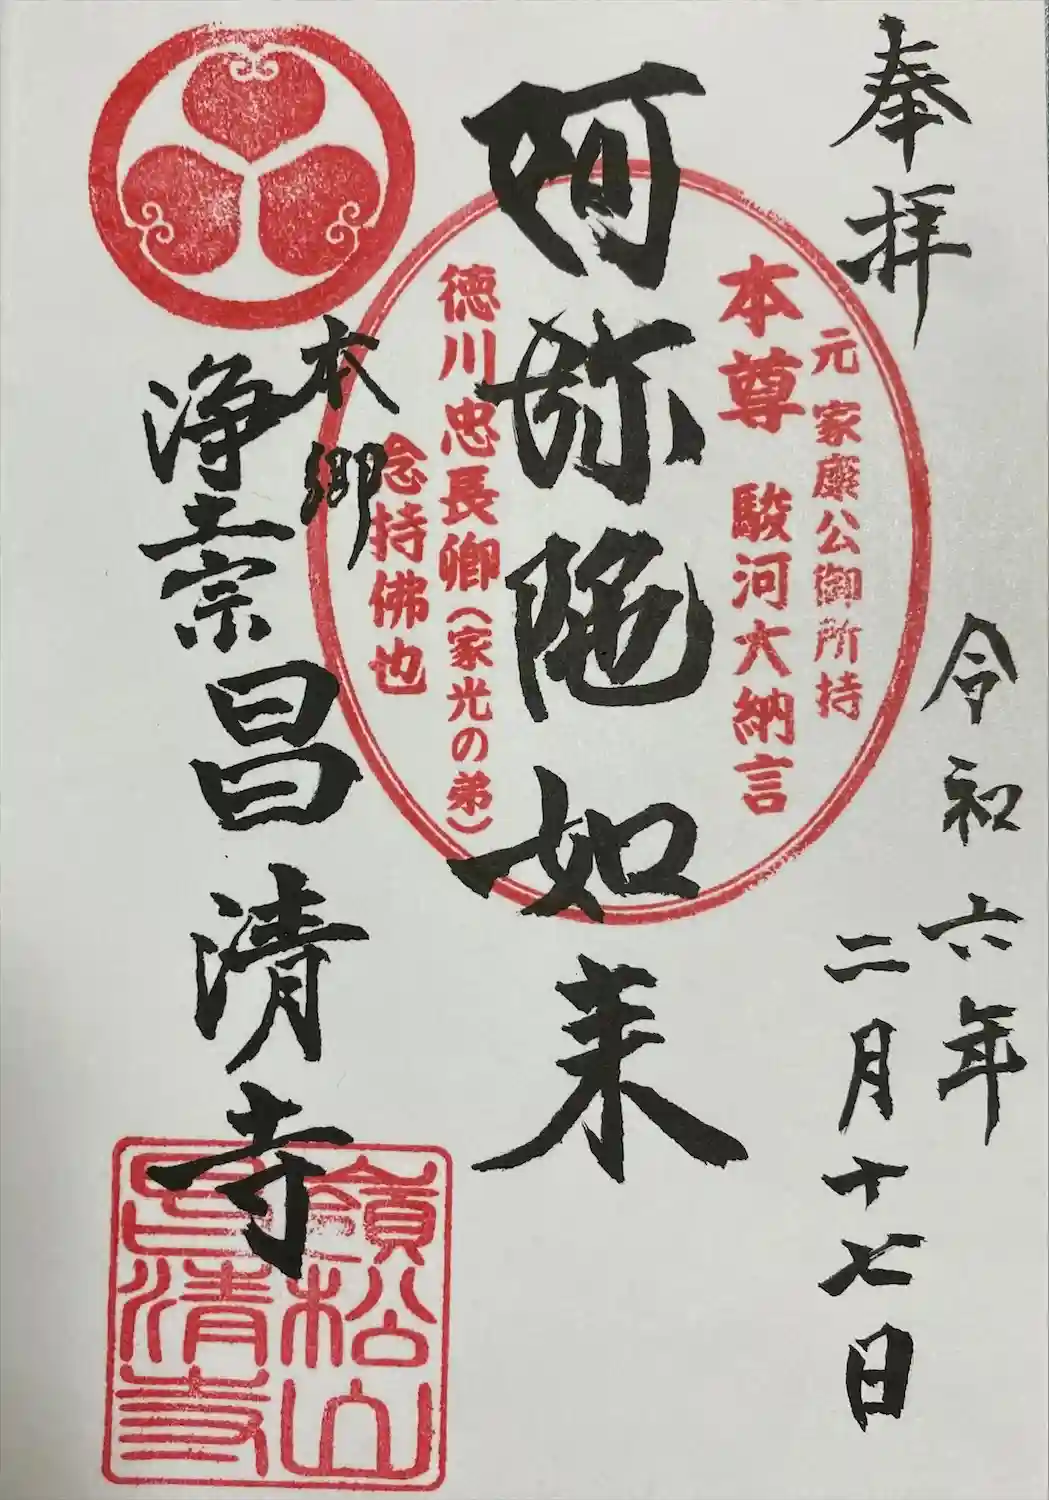 奉拝
令和六年
二月十七日
元 家康公御所持
本尊 駿河大納言
阿弥陀如来
徳川忠長卿(家光の弟)
念持佛也
本郷
浄土宗 昌清寺
嶺松山
昌清寺